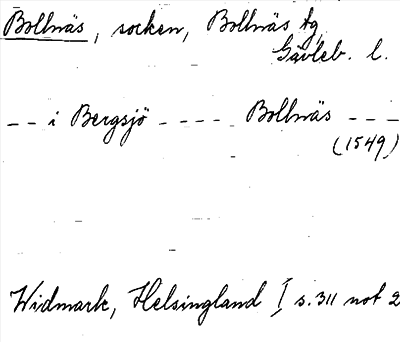 Bollnäs, socken, Bollnäs tg,
Gävleb. l.
-- i Bergsjö ---- Bollnäs ---
(1549)
Widmark, Helsingland I s. 311 not 2